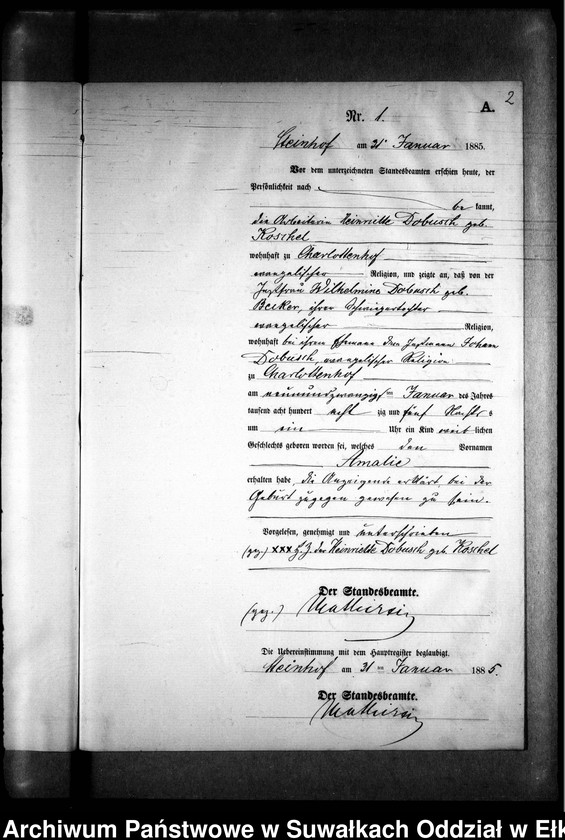 2
A.
Nr. 1.
Steinhof am 31 Januar 1885.
Vor dem unterzeichneten Standesbeamten erschien heute, der
Persönlichkeit nach
be kannt,
die Arbeiterin Heinriette Dobusch geb.
Koschel
wohnhaft zu Charlottenhof
evangelischer Religion, und zeigte an, daß von der
Instfrau Wilhelmine Dobusch geb.
Becker, ihrer Schwiegertochter
evangelischer Religion,
wohnhaft bei ihrem Ehemann dem Instmann Johan
Dobusch, evangelischer Religion
zu Charlottenhof
am neunundzwanzigsten Januar des Jahres
tausend acht hundert acht zig und fünf Nachts
um ein Uhr ein Kind weib lichen
Geschlechts geboren worden sei, welches den Vornamen
Amalie
erhalten habe, die Anzeigende erklärt, bei der
Geburt zugegen gewesen zu sein.
Vorgelesen, genehmigt und unterschrieben
(gez.) XXX H. Z. der Heinriette Dobusch geb. Koschel
Der Standesbeamte.
(gez.)
Die Uebereinstimmung mit dem Hauptregister beglaubigt.
Steinhof am 31 ten Januar 1885.
Der Standesbeamte.
Archiwum Państwowe w Suwałkach Oddział w Ełk